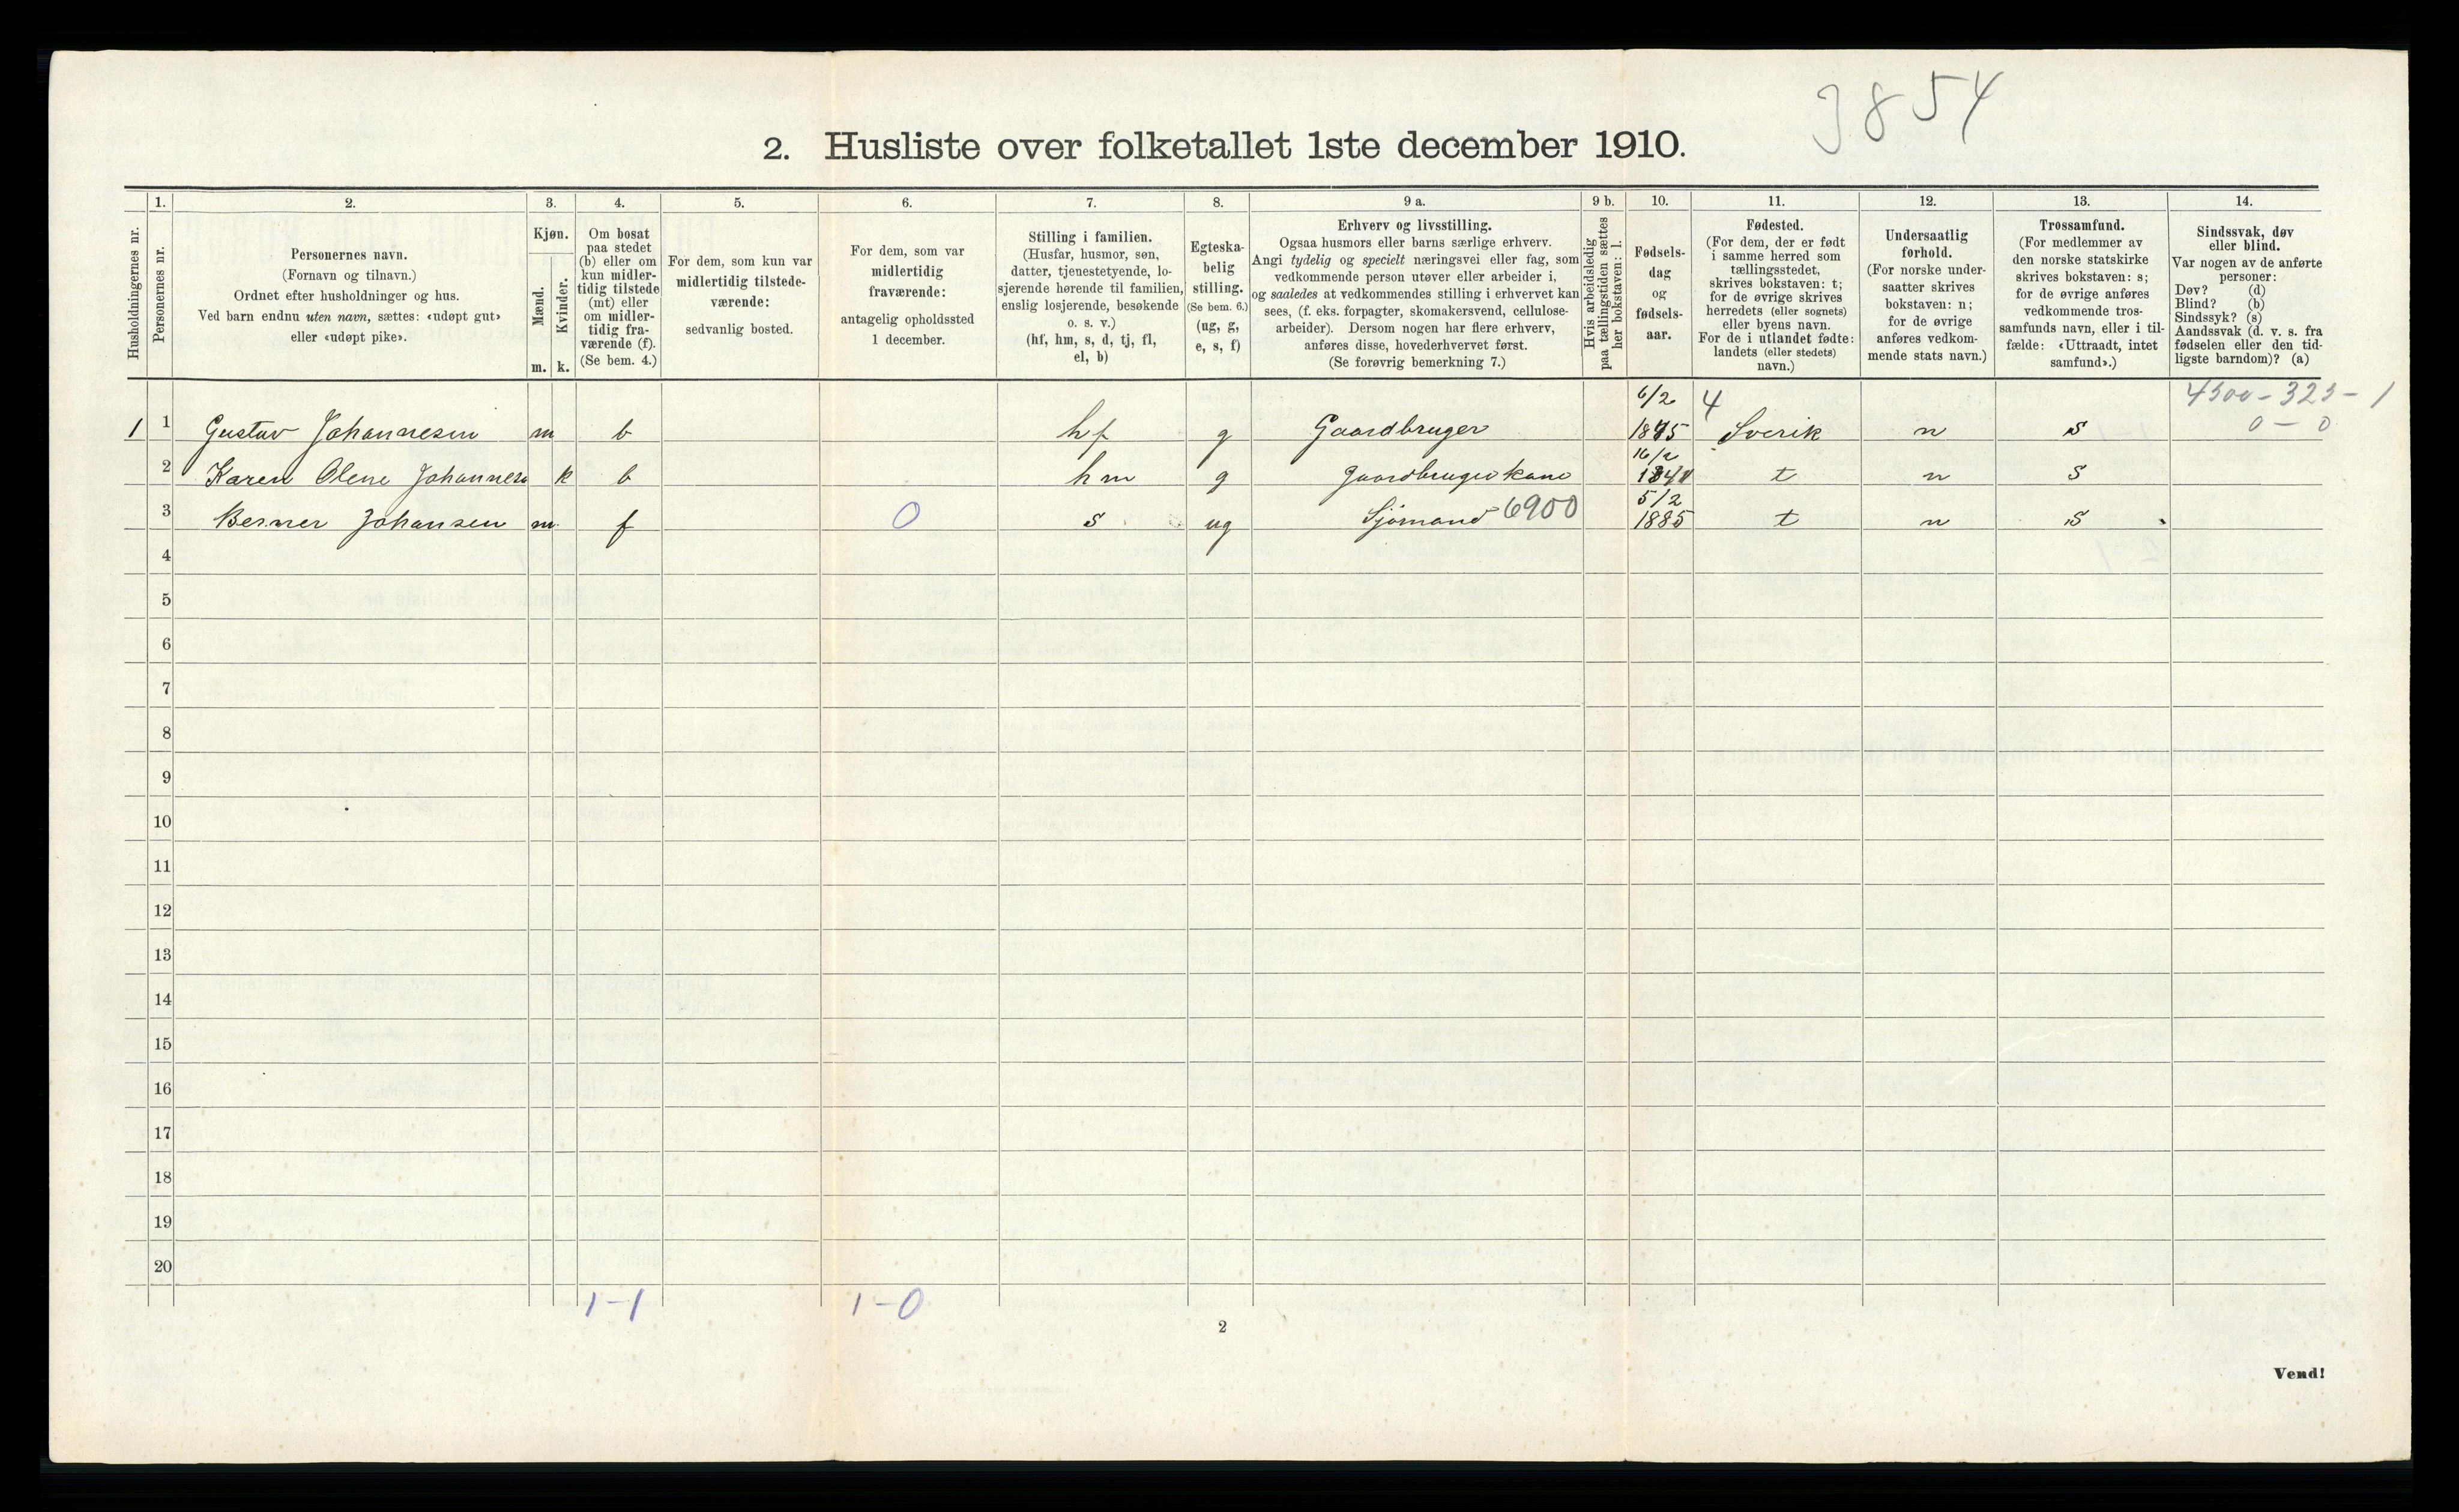 3854
2. Husliste over folketallet 1ste december 1910.
Husholdningernes nr.
1.
Personernes nr.
2.
Personernes navn.
(Fornavn og tilnavn.)
Ordnet efter husholdninger og hus.
Ved barn endnu uten navn, sættes: «udøpt gut»
eller «udøpt pike».
3.
Kjøn.
Mænd.
Kvinder.
m. k.
4.
Om bosat
paa stedet
(b) eller om
kun midler-
tidig tilstede
(mt) eller
om midler-
tidig fra-
værende (f).
(Se bem. 4.)
5.
For dem, som kun var
midlertidig tilstede-
værende:
sedvanlig bosted.
6.
For dem, som var
midlertidig
fraværende:
antagelig opholdssted
1 december.
7.
Stilling i familien.
(Husfar, husmor, søn,
datter, tjenestetyende, lo-
sjerende hørende til familien,
enslig losjerende, besøkende
o. s. v.)
(hf, hm, s, d, tj, fl,
el, b)
8.
Egteska-
belig
stilling.
(Se bem. 6.)
(ug, g,
e, s, f)
9 a.
Erhverv og livsstilling.
Ogsaa husmors eller barns særlige erhverv.
Angi tydelig og specielt næringsvei eller fag, som
vedkommende person utøver eller arbeider i,
og saaledes at vedkommendes stilling i erhvervet kan
sees, (f. eks. forpagter, skomakersvend, cellulose-
arbeider). Dersom nogen har flere erhverv,
anføres disse, hovederhvervet først.
(Se forøvrig bemerkning 7.)
9 b.
Hvis arbeidsledig
paa tællingstiden sættes
her bokstaven: l.
10.
Fødsels-
dag
og
fødsels-
aar.
11.
Fødested.
(For dem, der er født
i samme herred som
tællingsstedet,
skrives bokstaven: t;
for de øvrige skrives
herredets (eller sognets)
eller byens navn.
For de i utlandet fødte:
landets (eller stedets)
navn.)
12.
Undersaatlig
forhold.
(For norske under-
saatter skrives
bokstaven: n;
for de øvrige
anføres vedkom-
mende stats navn.)
13.
Trossamfund.
(For medlemmer av
den norske statskirke
skrives bokstaven: s;
for de øvrige anføres
vedkommende tros-
samfunds navn, eller i til-
fælde: «Uttraadt, intet
samfund».)
14.
Sindssvak, døv
eller blind.
Var nogen av de anførte
personer:
Døv? (d)
Blind? (b)
Sindssyk? (s)
Aandssvak (d. v. s. fra
fødselen eller den tid-
ligste barndom)? (a)
6/2 4 4300-323-1
1 1 Gustav Johannesen m b hf g Gaardbruger Sverik n s 0-0
16/2
2 Karen Olene k b hm g gaardbruger kone t n s
5/2
3 Berner Johansen m f 0 s ug Sjømand 6900 1885 t n s
4
5
6
7
8
9
10
11
12
13
14
15
16
17
18
19
20
1-1 1-0
2
Vend!